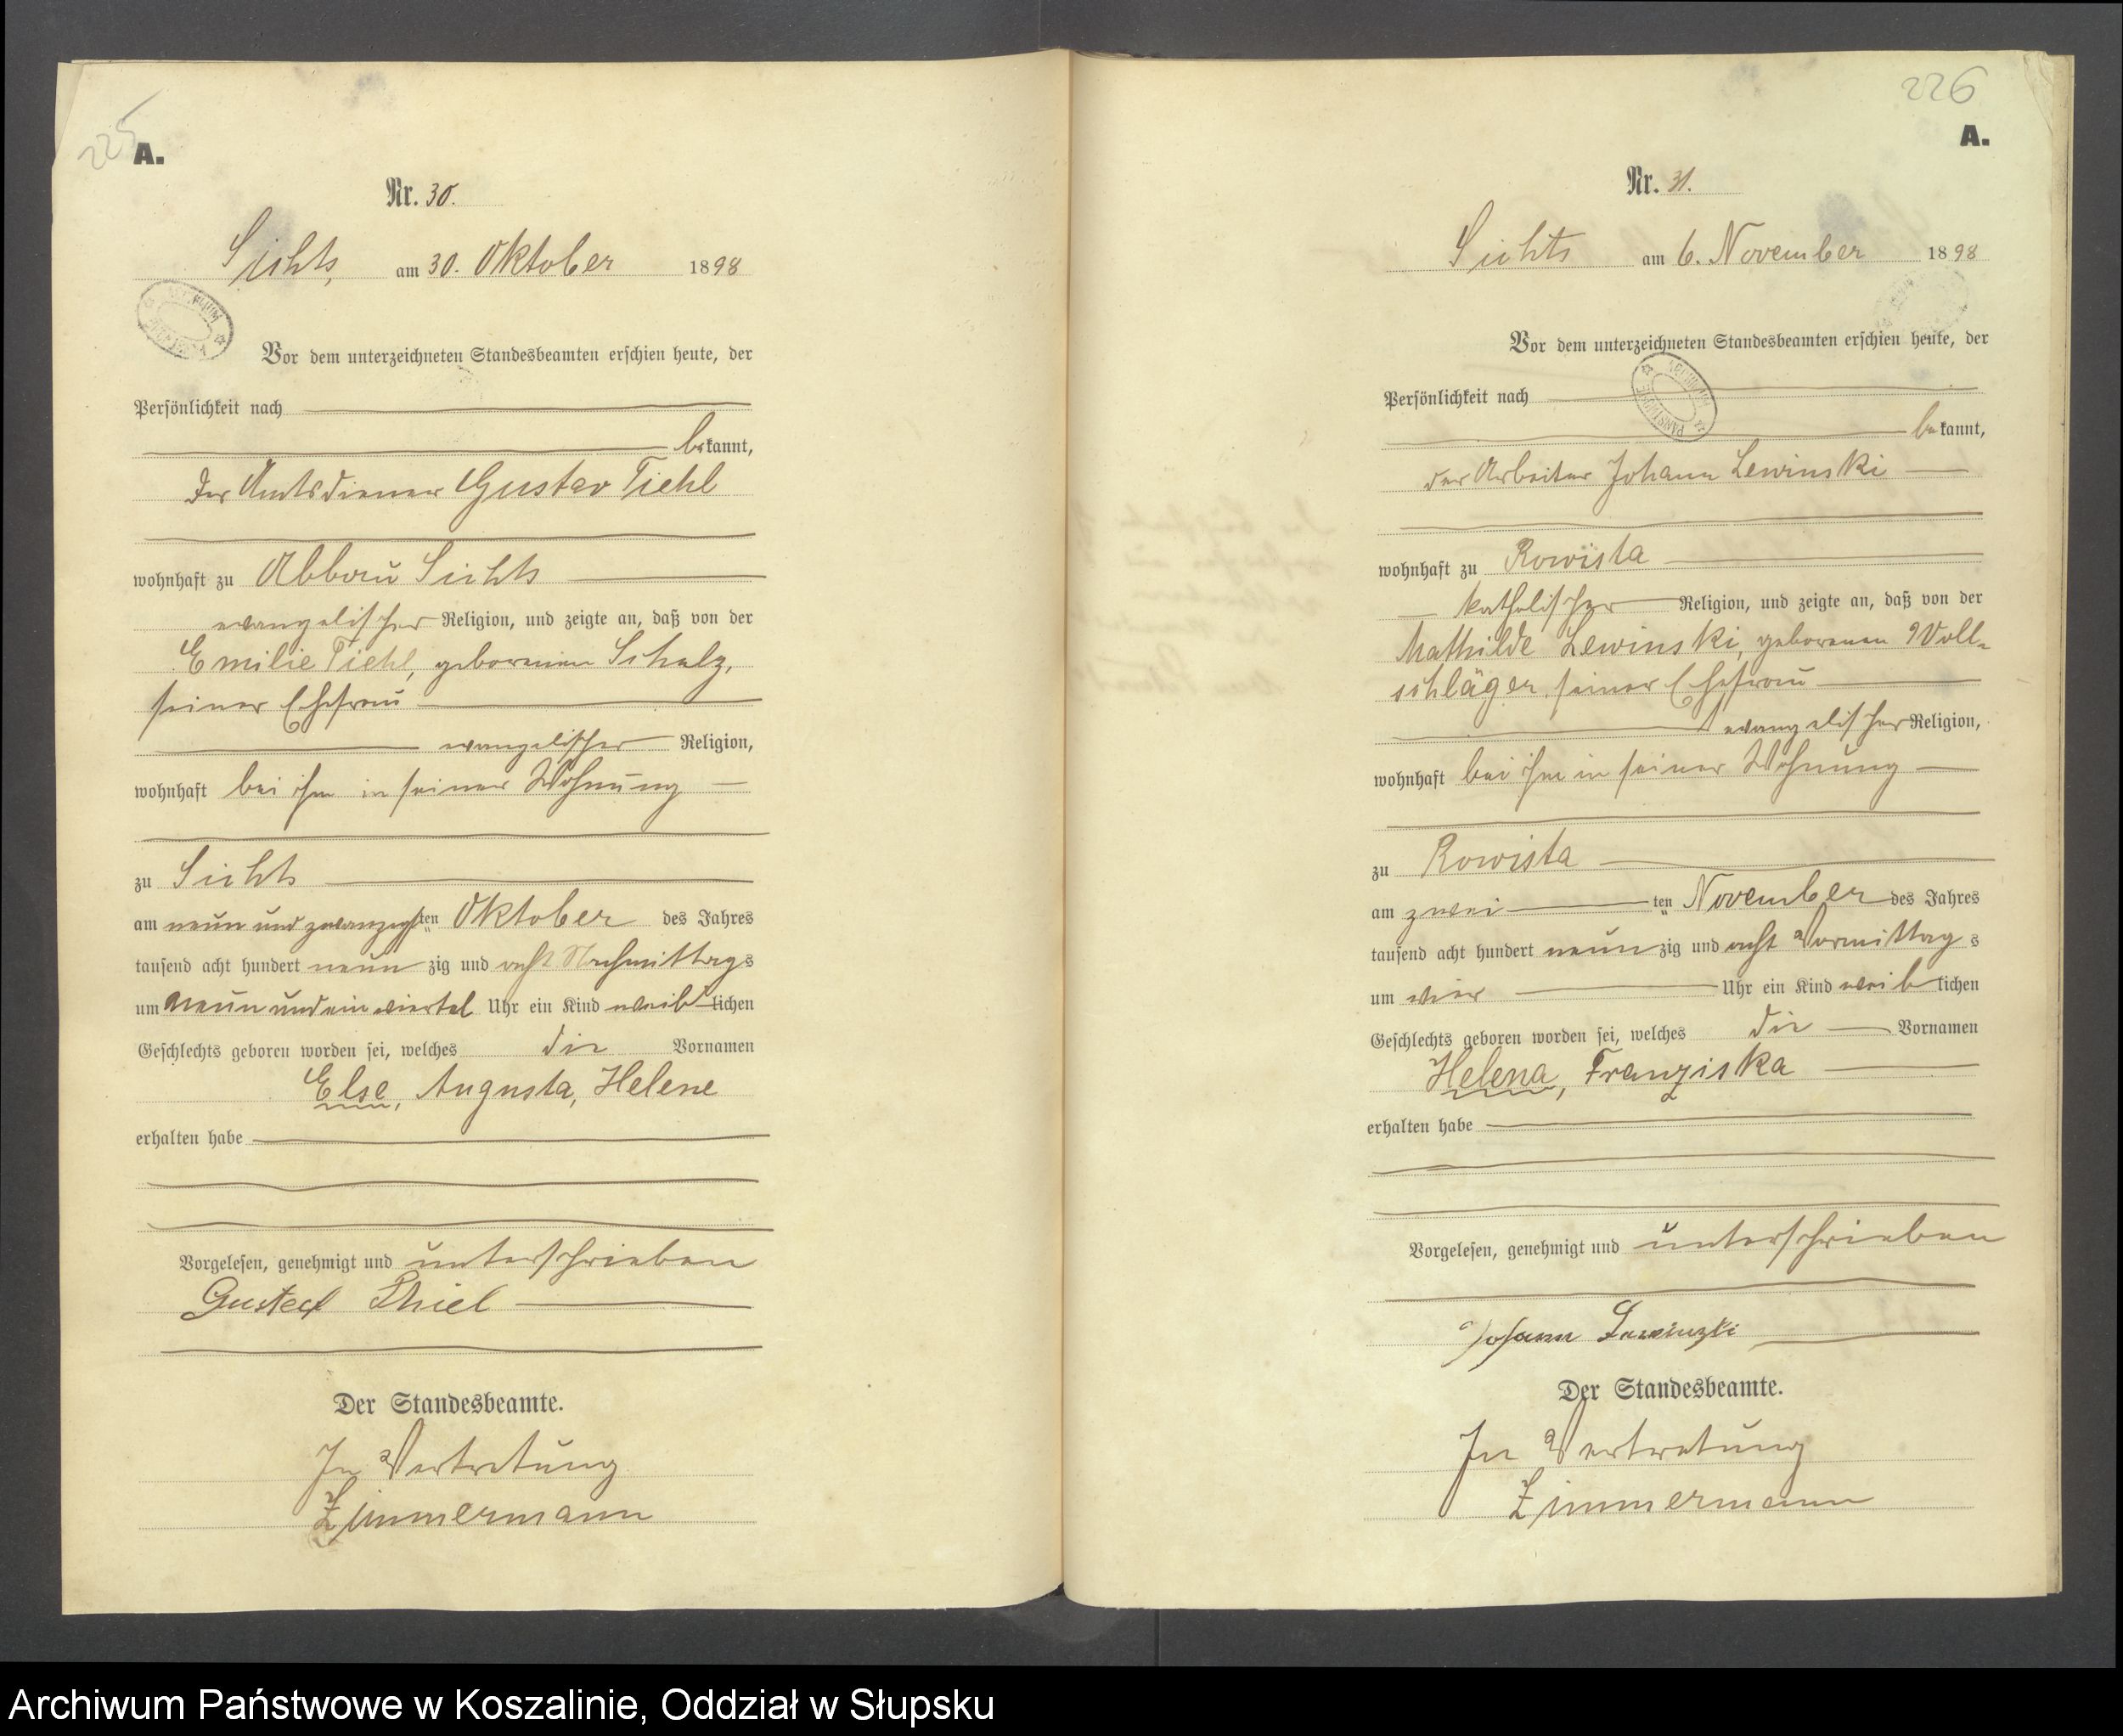 225
A.
Nr. 30.
Sichts, am 30. Oktober 1898
Vor dem unterzeichneten Standesbeamten erschien heute, der
Persönlichkeit nach
bekannt,
der Amtsdiener Gustav Tiehl
wohnhaft zu Abbau Sichts
evangelischer Religion, und zeigte an, daß von der
Emilie Tiehl, geborenen Schulz,
seiner Ehefrau
evangelischer Religion,
wohnhaft bei ihm in seiner Wohnung
zu Sichts
am neun und zwanzigsten Oktober des Jahres
tausend acht hundert neunzig und acht Nachmittags
um neun und ein viertel Uhr ein Kind weiblichen
Geschlechts geboren worden sei, welches die Vornamen
Else, Augusta, Helene
erhalten habe
Vorgelesen, genehmigt und unterschrieben
Gustaf Thiel
Der Standesbeamte.
In Vertretung
Zimmermann
226
A.
Nr. 31.
Sichts am 6. November 1898
Vor dem unterzeichneten Standesbeamten erschien heute, der
Persönlichkeit nach
bekannt,
der Arbeiter Johann Lewinski
wohnhaft zu Rowista
katholischer Religion, und zeigte an, daß von der
Mathilde Lewinski, geborenen Woll-
schläger, seiner Ehefrau
evangelischer Religion,
wohnhaft bei ihm in seiner Wohnung
zu Rowista
am zweiten November des Jahres
tausend acht hundert neunzig und acht Vormittags
um vier Uhr ein Kind weiblichen
Geschlechts geboren worden sei, welches die Vornamen
Helena, Franziska
erhalten habe
Vorgelesen, genehmigt und unterschrieben
Johann Lewinzki
Der Standesbeamte.
In Vertretung
Zimmermann
Archiwum Państwowe w Koszalinie, Oddział w Słupsku